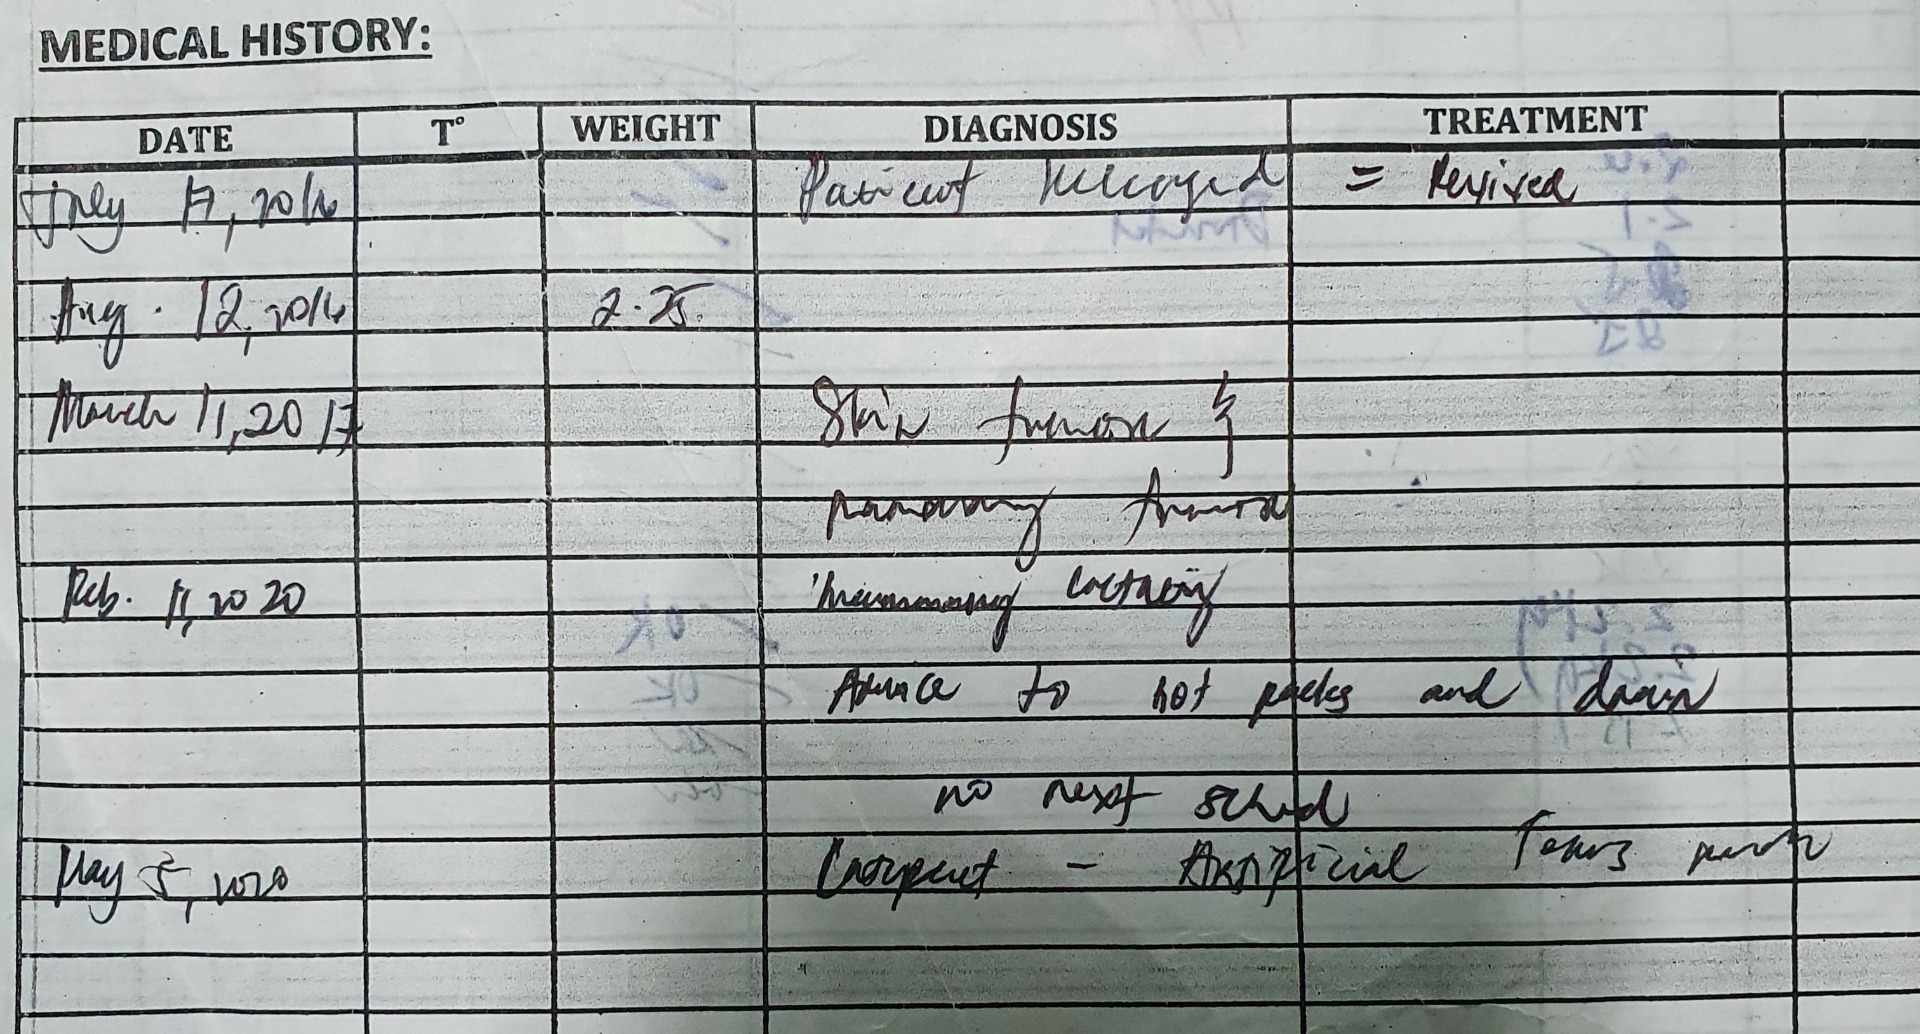 MEDICAL HISTORY:
DATE T° WEIGHT DIAGNOSIS TREATMENT
July 17, 2016 Patient = Revived
Aug. 12, 2016 2.25
March 11, 2017 Skin tumor &
mammary tumor
Feb. 11, 2020 mammary
Advice to hot packs and drain
no next sched
May 5, 2020 - Artificial Tears